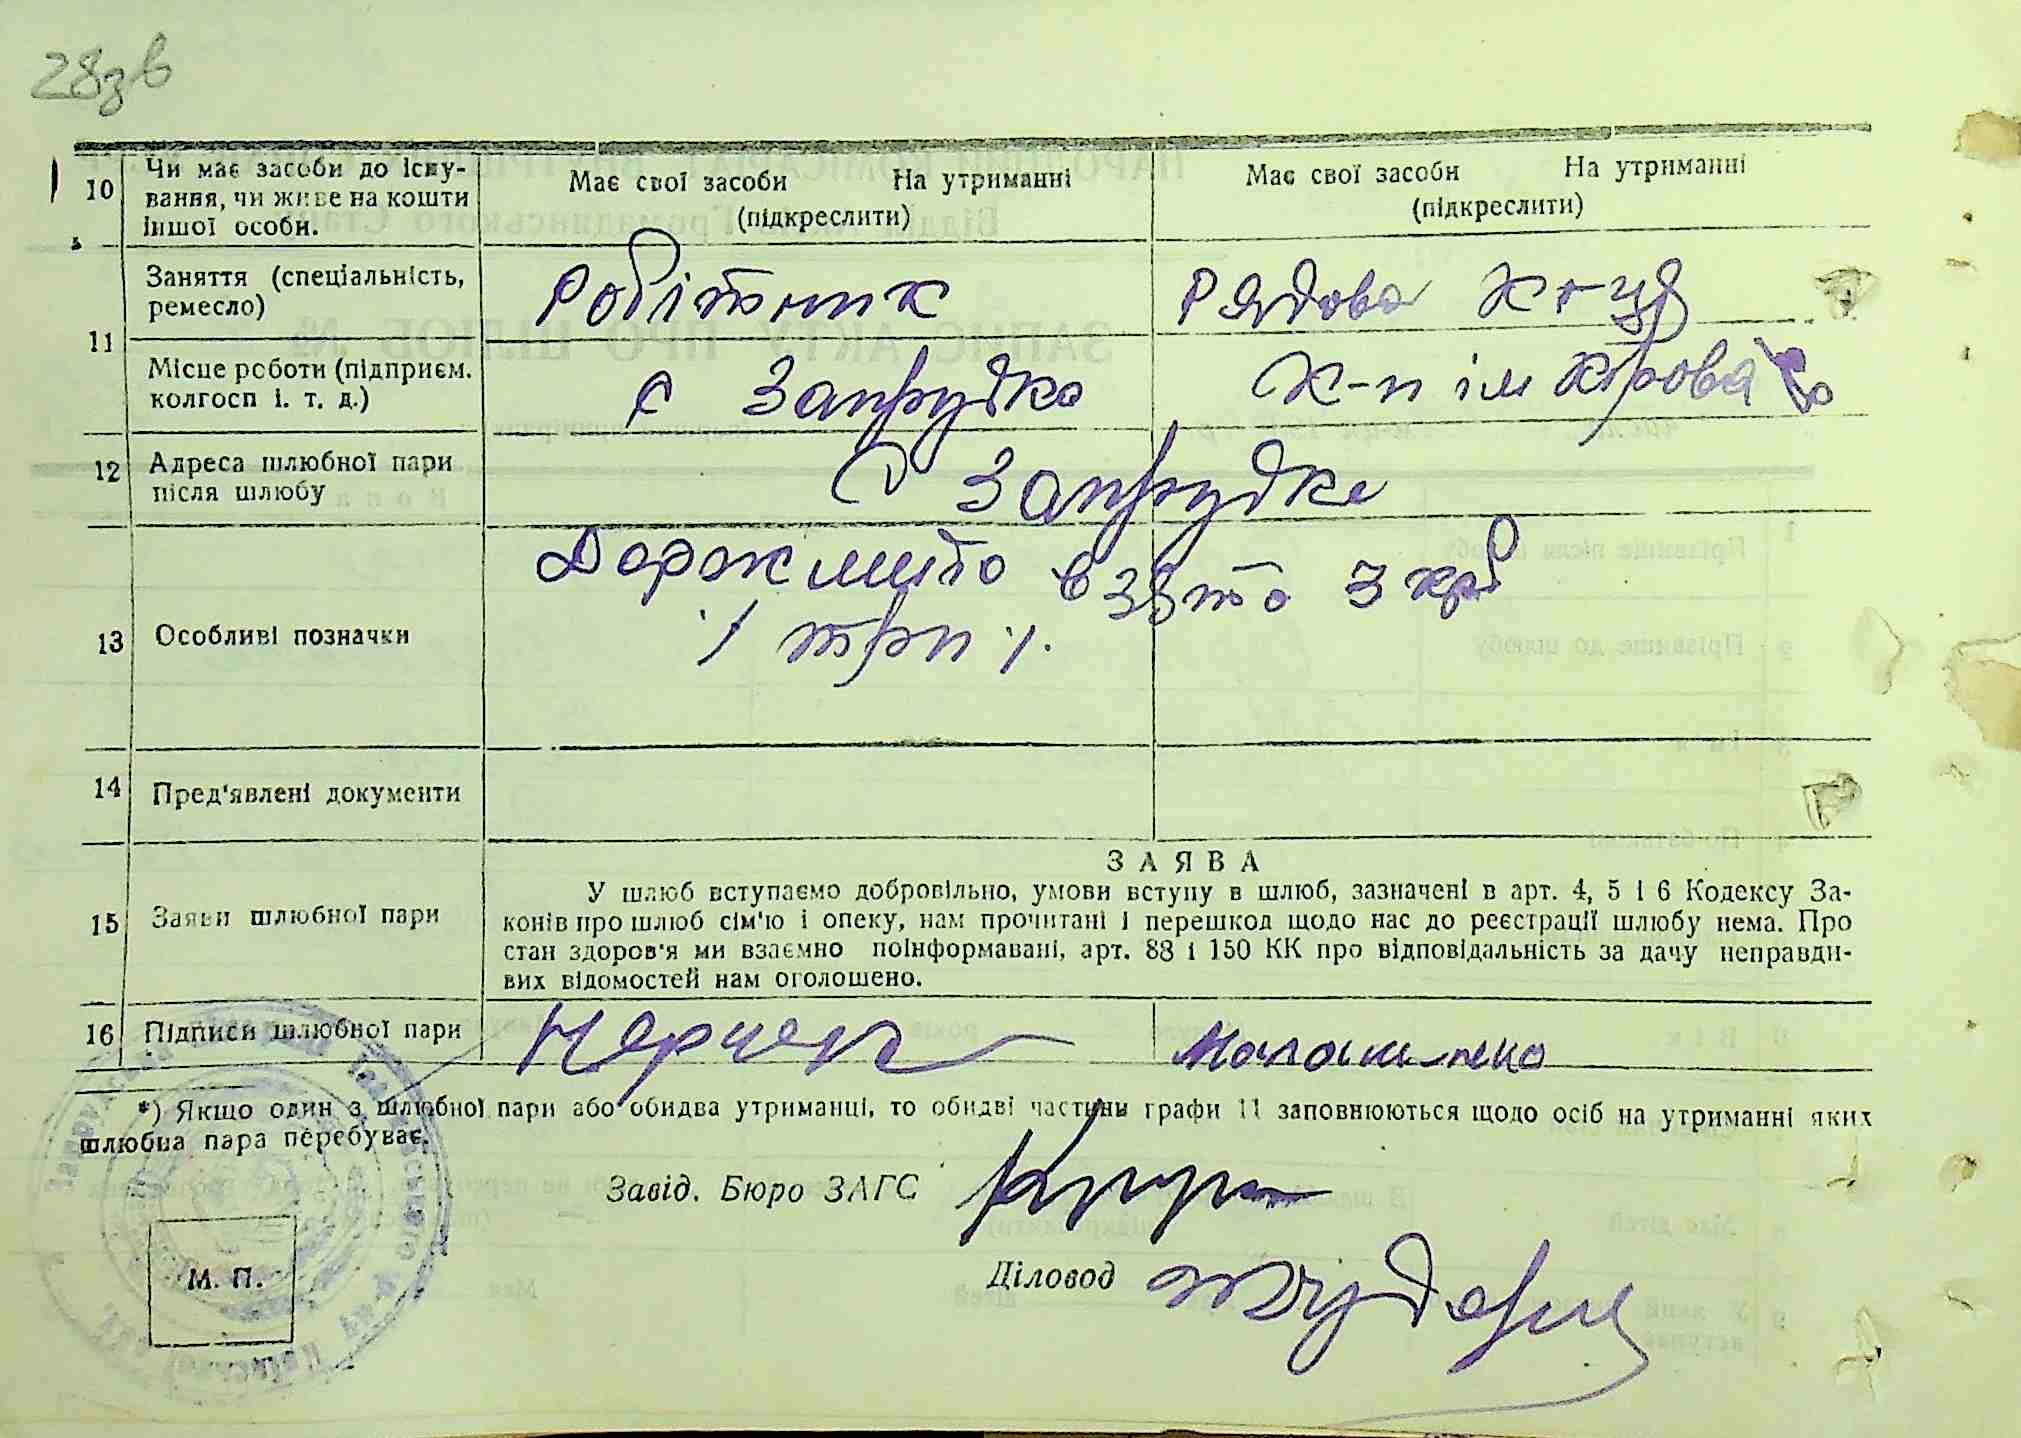 28зв
10 Чи має засоби до існу-
вання, чи живе на кошти
іншої особи.
Має свої засоби На утриманні
(підкреслити)
Має свої засоби На утриманні
(підкреслити)
11 Заняття (спеціальність,
ремесло)
Робітник
Рядова
Місце роботи (підприєм.
колгосп і. т. д.)
с Запрудка
К-п ім Кірова
12 Адреса шлюбної пари
після шлюбу
с Запрудке
13 Особливі позначки
Держ мито взято 3 крб
/ три /.
14 Пред'явлені документи
15 Заяви шлюбної пари
ЗАЯВА
У шлюб вступаємо добровільно, умови вступу в шлюб, зазначені в арт. 4, 5 і 6 Кодексу За-
конів про шлюб сім'ю і опеку, нам прочитані і перешкод щодо нас до реєстрації шлюбу нема. Про
стан здоров'я ми взаємно поінформавані, арт. 88 і 150 КК про відповідальність за дачу неправди-
вих відомостей нам оголошено.
16 Підписи шлюбної пари
*) Якщо один з шлюбної пари або обидва утриманці, то обидві частини графи 11 заповнюються щодо осіб на утриманні яких
шлюбна пара перебуває.
Завід. Бюро ЗАГС
Діловод
М. П.